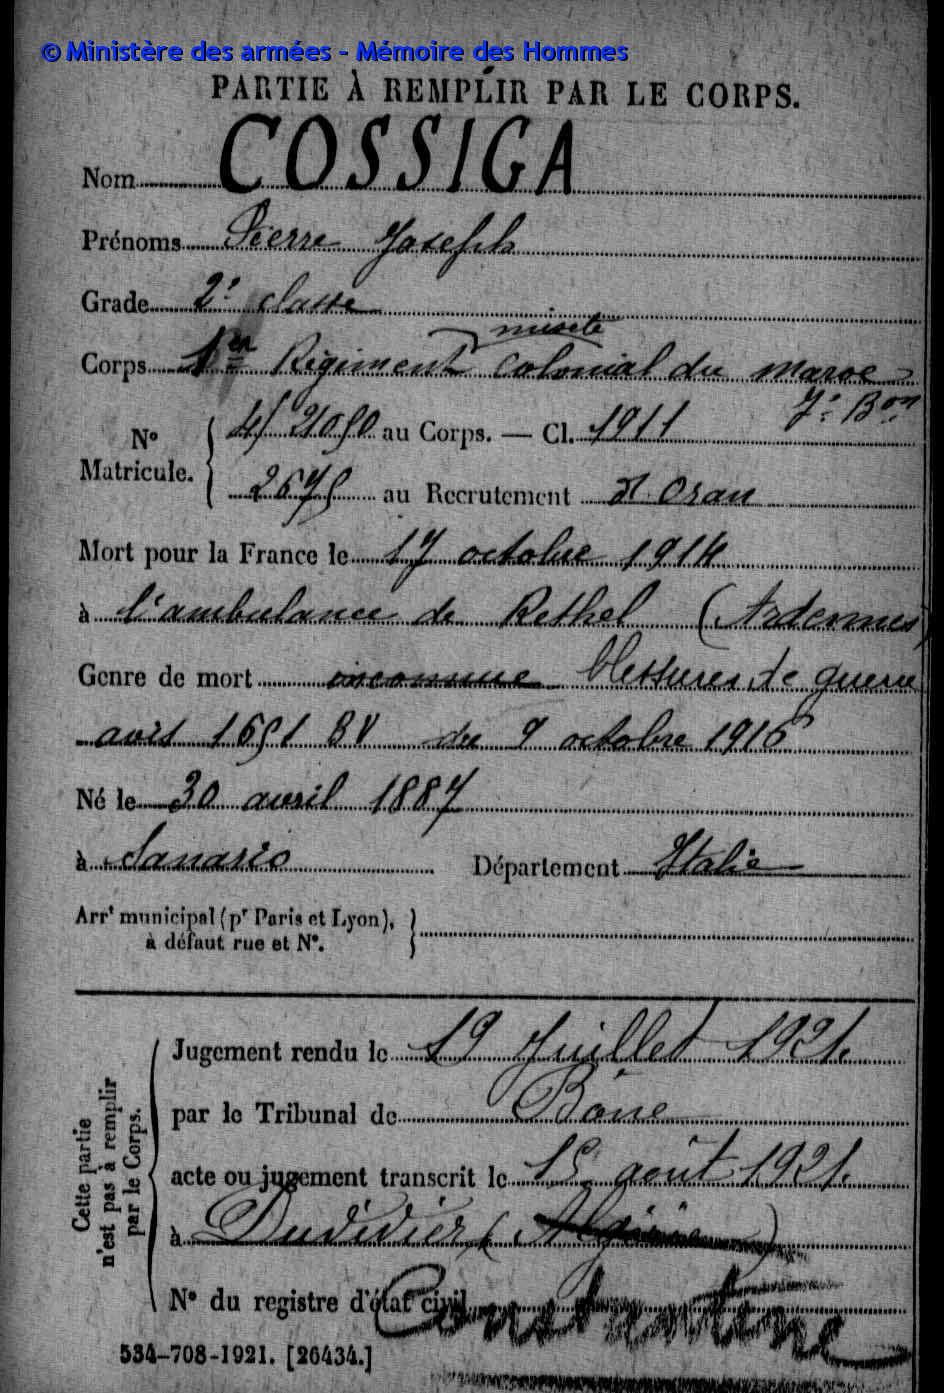 © Ministère des armées - Mémoire des Hommes
PARTIE À REMPLIR PAR LE CORPS.
Nom COSSIGA
Prénoms Pierre Joseph
Grade 2e classe
mixte
Corps 1er Régiment colonial du maroc
7e Bon
No Matricule. { 4/21050 au Corps. — Cl. 1911
2675 au Recrutement d'Oran
Mort pour la France le 17 octobre 1914
à l'ambulance de Rethel (Ardennes)
Genre de mort inconnue blessures de guerre
avis 1651 BV du 9 octobre 1916
Né le 30 avril 1887
à Sanario Département Italie
Arrt municipal (pr Paris et Lyon), }
à défaut rue et No.
Cette partie n'est pas à remplir par le Corps.
Jugement rendu le 19 Juillet 1921.
par le Tribunal de Bône
acte ou jugement transcrit le 15 août 1921.
à Duvivier (Algérie)
No du registre d'état civil
Constantine
534-708-1921. [26434.]